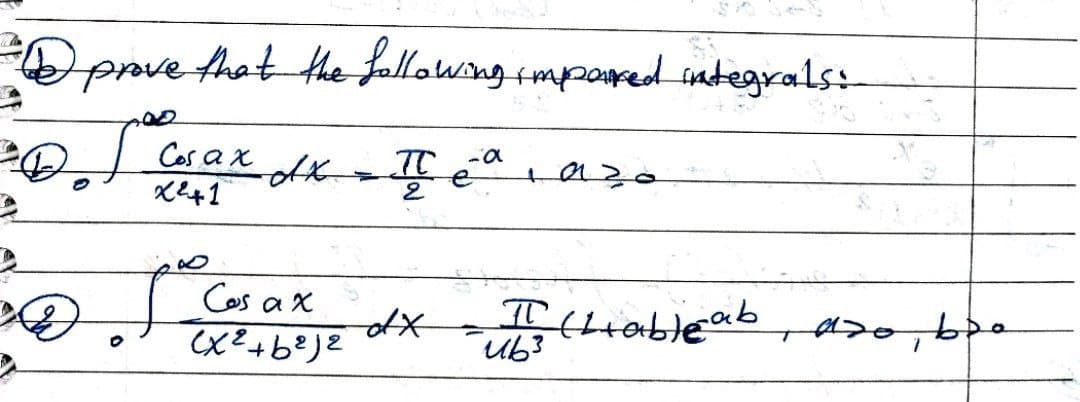 (b) prove that the following impored integrals:
① ∫₀^∞ Cos ax / x²+1 dx = π/2 e^-a , a ≥ 0
② ∫₀^∞ Cos ax / (x²+b²)² dx = π/4b³ (1+ab)e^-ab , a>0, b>0